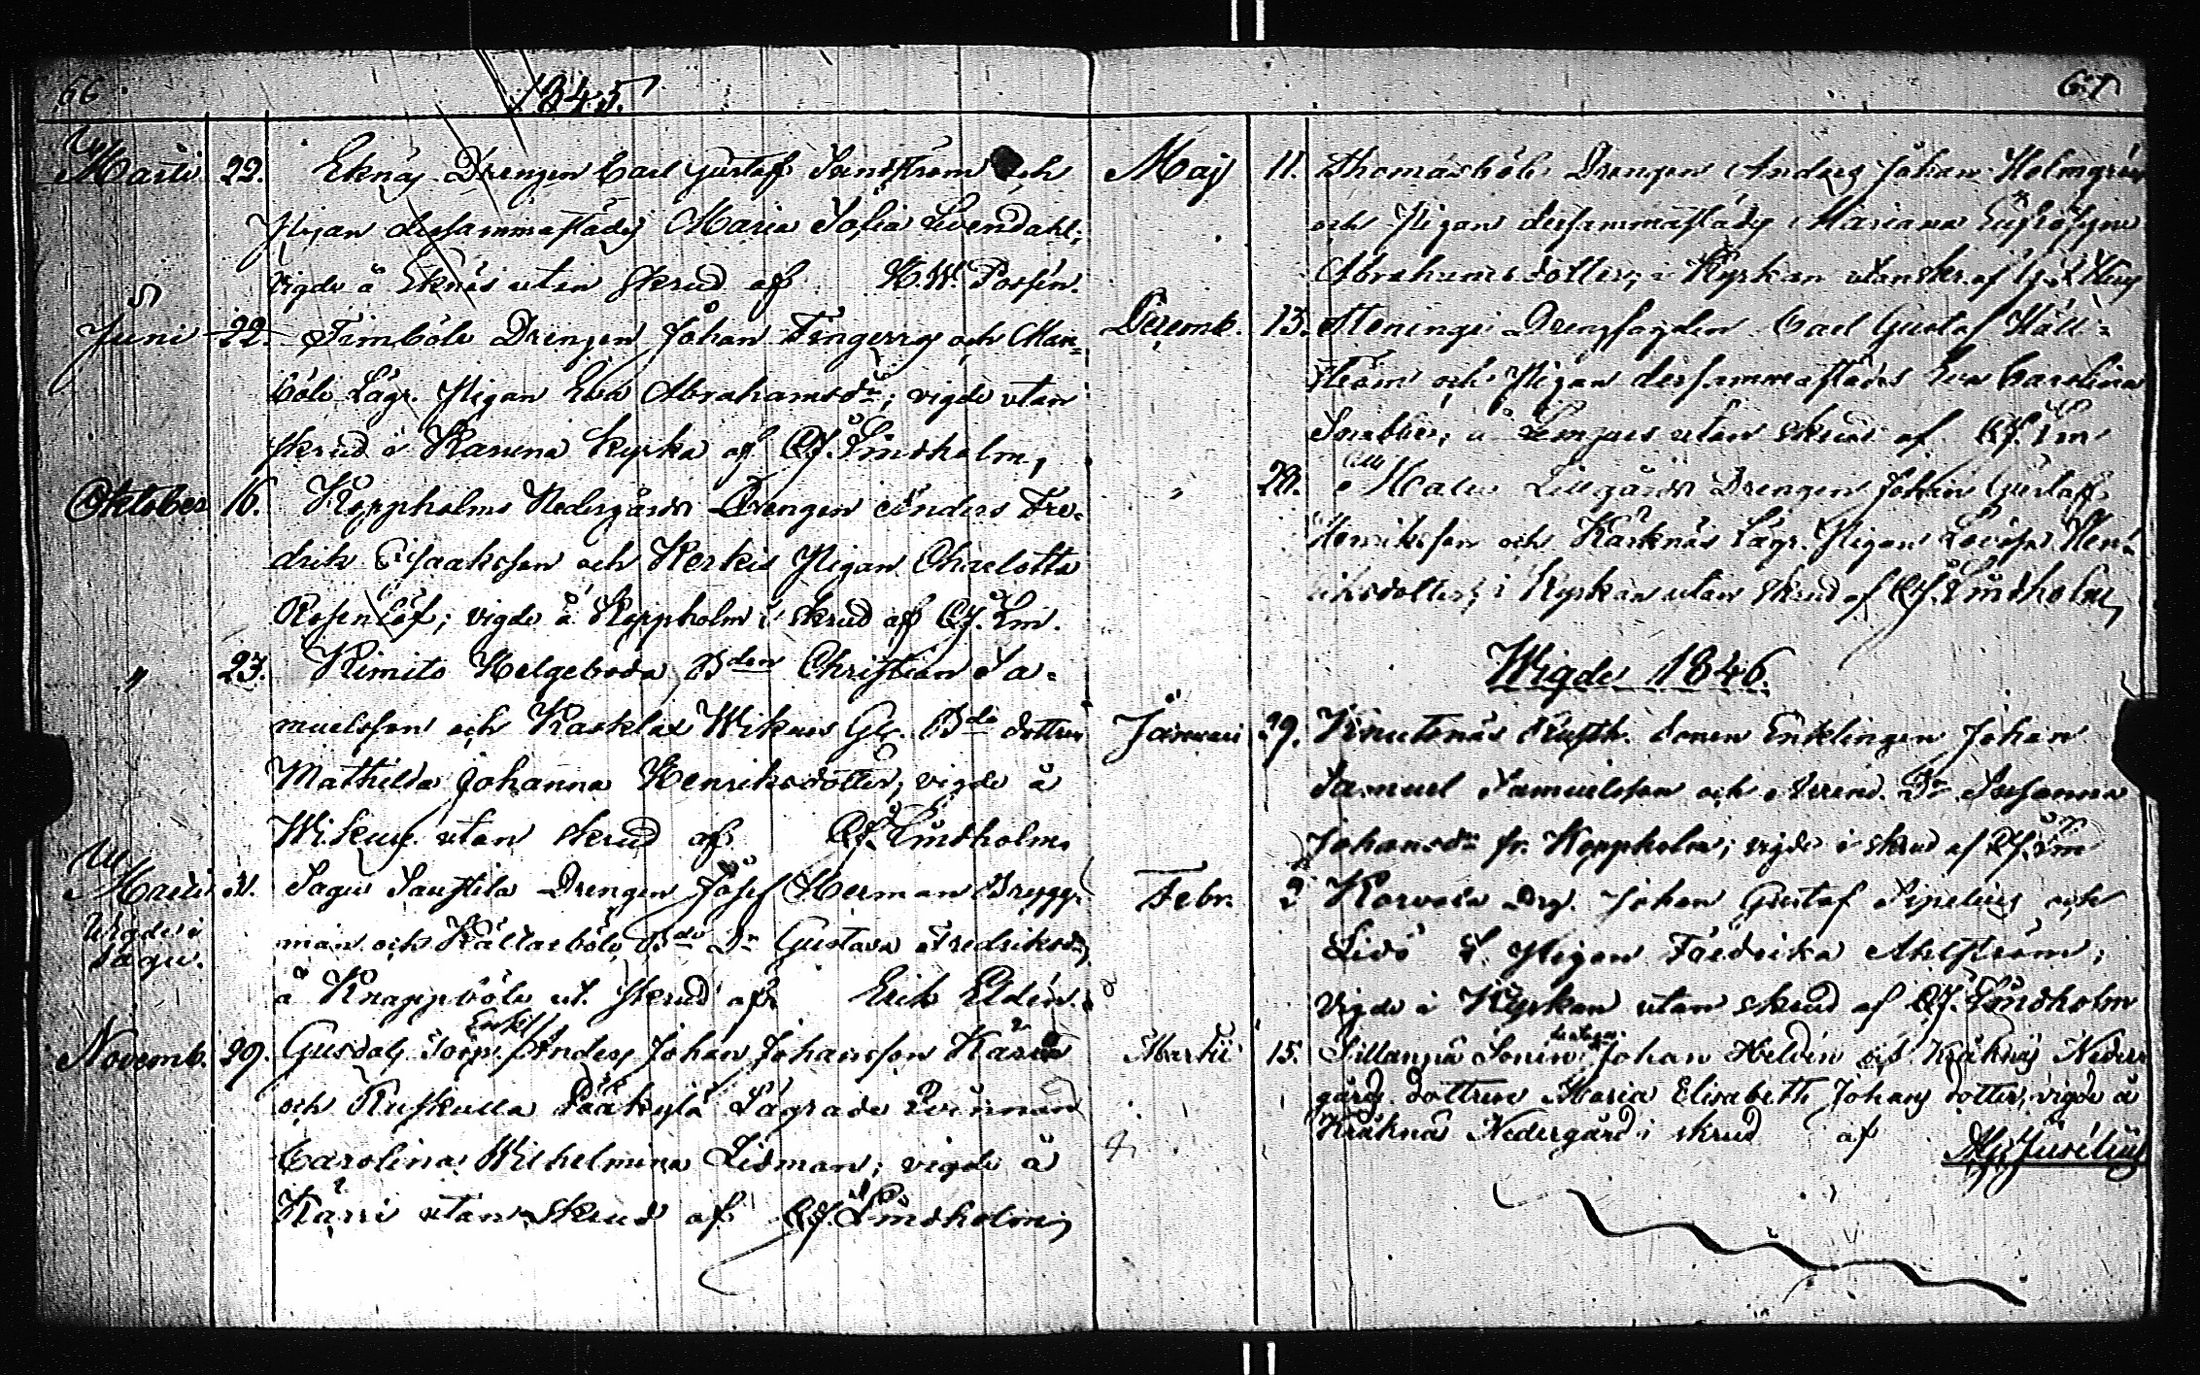 66
1845.
Martii 22. Eknäs Drengen Carl Gustaf Sundström och
Pigan dersammastädes Maria Sofia Svendahl;
vigde å Eknäs utan skrud af K. W. Possén.
Juni 22. Fimböle Drengen Johan Fingerroos och Man-
böle Lägr. Pigan Eva Abrahamsdr; vigde utan
skrud i Karuna kyrka af CJ. Lindholm,
Oktober 16. Koppholms Nedergårds Drengen Anders Fre-
drik Isaaksson och Kerkis Pigan Charlotta
Rosenlöf; vigde å Koppholm i skrud af CJ. Lm.
" 23. Kimito Helgeboda Bden Christian Sa-
muelsson och Kasklax Wikars Gl. Bde dottren
Mathilda Johanna Henriksdotter, vigde å
Wikars utan skrud af CJ. Lindholm.
Martii 21. Sagu Saustila Drengen Josef Herman Brygg-
Vigde i man och Källarböle Bde Dr Gustava Fredriksdr,
Sagu. å Knappböle ut. skrud af Erik Eldén.
Novemb. 29. Gusdals Torp. Enkl. Anders Johan Johansson Kärri
och Ruskulla Pääkylä Lägrade Qvinnan
Carolina Wilhelmina Lidman; vigde å
Kärri utan skrud af CJ. Lindholm,
67
Maj 11. Thomasböle Drengen Anders Johan Holmgrén
och Pigan dersammastädes Mariana Eufrosyne
Abrahamsdotter; i Kyrkan utan skr. af
Decemb. 13. Steninge Drengfogden Carl Gustaf Häll-
ström och Pigan dersammastädes Eva Carolina
Snabbe; å utan skrud af CJ. Lm
" 28. Lillgårds Drengen Johan Gustaf
Henriksson och Karknäs Lägr. Pigan Lovisa Hen-
riksdotter; i Kyrkan utan skrud af CJ. Lindholm,
Wigde 1846.
Januari 29. Knutsnäs Rusth. sonen Enklingen Johan
Samuel Samuelsson och Arrend. Dr Susanna
Johansdr fr. Koppholm; vigde i skrud af CJ. Lm
Febr. 2 Korvola Drg. Johan Gustaf Sipelius och
Lidö L. Pigan Fredrika Ahlström;
vigde i Kyrkan utan skrud af CJ. Lindholm
Martii 15. Sillanpä Sonen Johan Heldén och Kråknäs Neder-
gårds dottren Maria Elisabeth Johansdotter, vigde å
Kråknäs Nedergård i skrud af Jusélius